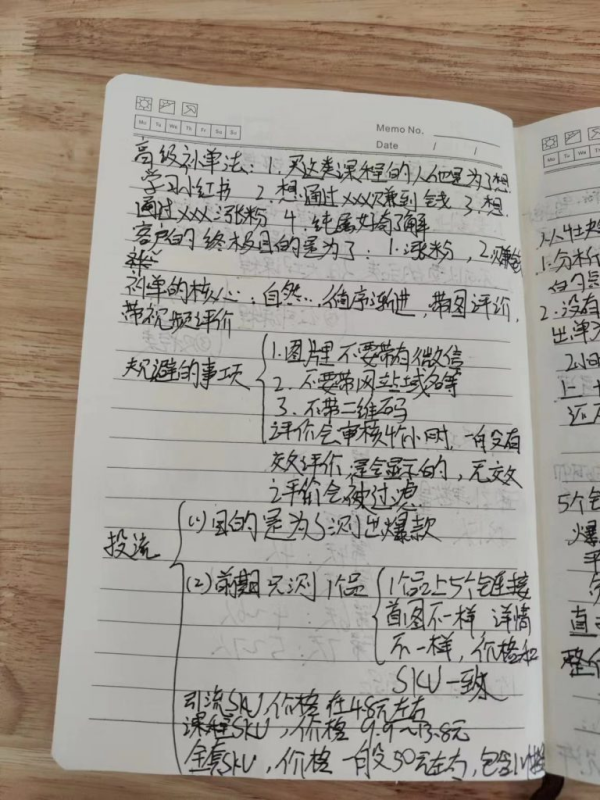 Mo Tu We Th Fr Sa Su
Memo No.
Date / /
高级补单法：1. 买这类课程的人他是为了想
学习小红书 2. 想通过xxx赚到钱 3. 想
通过xxx涨粉 4. 纯属好奇了解
客户的终极目的是为了：1. 涨粉，2. 赚钱
补单的核心：自然…循序渐进，带图评价，
带视频评价
规避的事项
1. 图片里不要带有微信
2. 不要带网站域名等
3. 不带二维码
评价会审核4个小时，一般没有
效评价是会显示的，无效
评价会被过虑
投流
(1) 目的是为了测出爆款
(2) 前期只测1个品
1个品上5个链接
首图不一样 详情
不一样，价格和
SKU一致
引流SKU，价格在4.8元左右
课程SKU，价格 9.9~13.8元
全套SKU，价格一般30元左右，包含
从
1. 分析
2. 没有
出单
2小时
上
还
5个
爆
直
整个